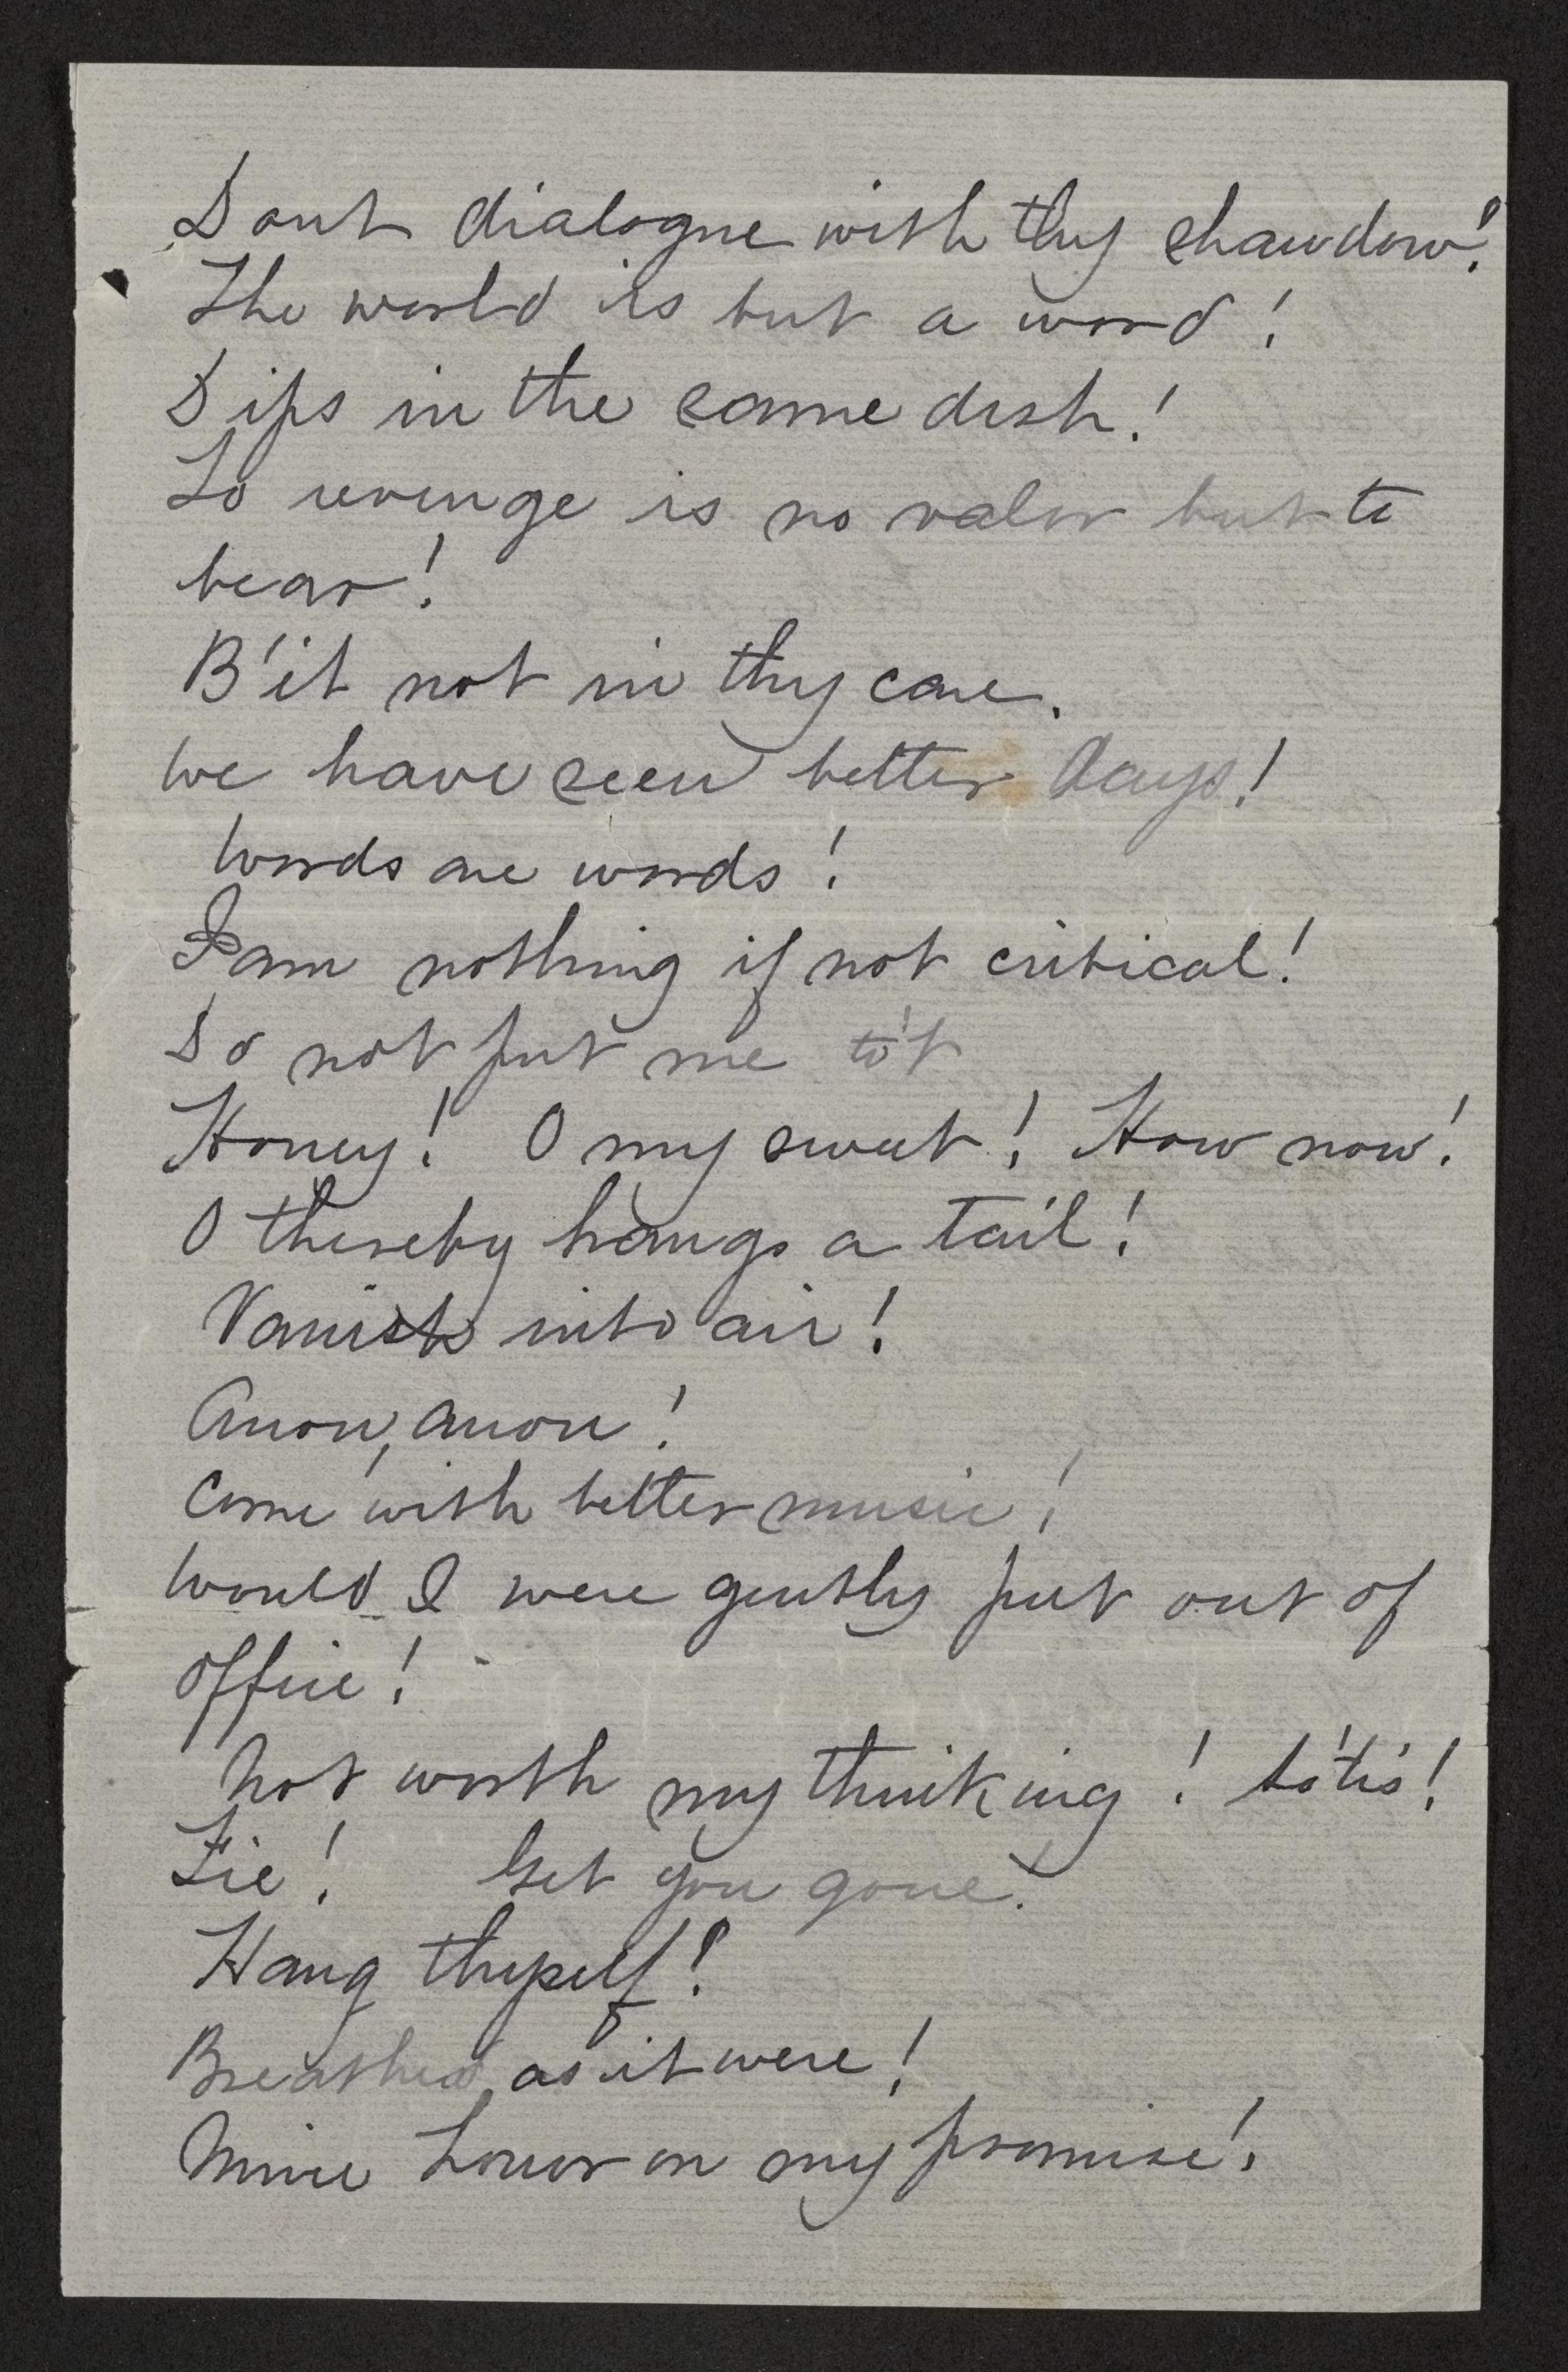 Dont dialogue with thy shawdow!
The world is but a word!
Dips in the same dish!
To revenge is no valor but to
bear!
B'it not in thy care.
We have seen better days!
Words are words!
I am nothing if not critical!
Do not put me to't
Honey! O my sweet! How now!
O thereby hangs a tail!
Vanish into air!
Anon, anon!
Come with better music!
Would I were gently put out of
office!
Not worth my thinking! to'tis!
Fie! Get you gone!
Hang thyself!
Breathed, as it were!
Mine honor on my promise!